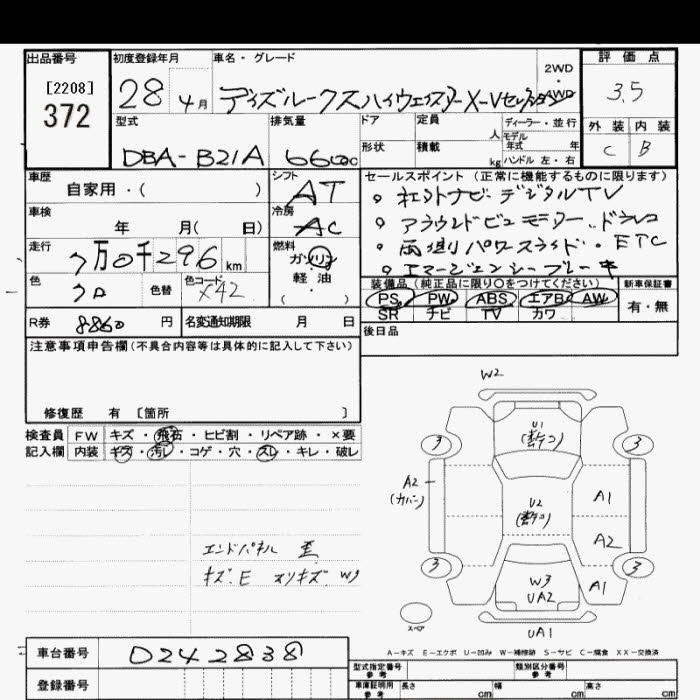 出品番号 初度登録年月 車名・グレード 2WD・4WD 評価点
[2208]
372
28 4月 デイズルークスハイウェイスターX-Vセレクション 3.5
型式 排気量 ドア 定員 人 ディーラー・並行 外装 内装
モデル年式 年
DBA-B21A 660cc 形状 積載 kg ハンドル 左・右 C B
車歴 シフト セールスポイント(正常に機能するものに限ります)
自家用・( ) AT 。社外ナビデジタルTV
車検 冷房 。アラウンドビューモニター、ドラレコ
年 月( 日) AC 。両側パワースライド・ETC
走行 燃料 。エマージェンシーブレーキ
7万0千296km ガソリン
軽油
・
( )
色 色替 色コード 装備品(純正品に限り〇をつけてください) 新車保証書
クロ X42 PS PW ABS エアB AW 有・無
SR チビ TV カワ
R券 8860円 名変通知期限 月 日 後日品
注意事項申告欄(不具合内容等は具体的に記入して下さい)
修復歴 有 [箇所 ]
検査員 FW キズ・飛石・ヒビ割・リペア跡・×要
記入欄 内装 キズ・汚レ・コゲ・穴・スレ・キレ・破レ
W2
U1
3 3
A2
(カバー)
A1
U2
A2
エンドパネル 歪
3 3
キズ、E スリキズ W3
W3
UA2
A1
スペア
UA1
A-キズ E-エクボ U-凹み W-補修跡 S-サビ C-腐食 XX-交換済
車台番号 0242838 型式指定番号 参考 類別区分番号 参考
登録番号 車庫証明用 参考 長さ cm 幅 cm 高さ cm